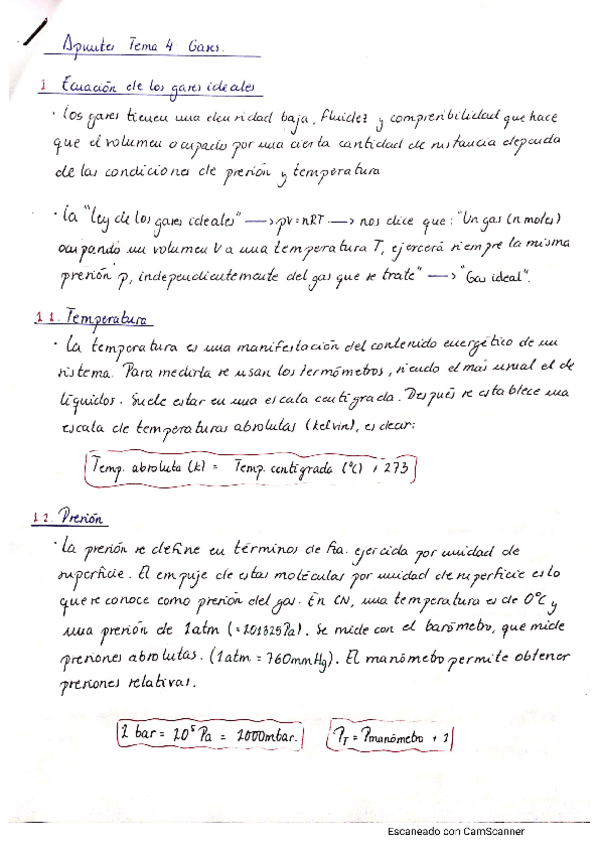 Apuntes Tema 4 Gases.
1 Ecuación de los gases ideales
· Los gases tienen una densidad baja, fluidez y compresibilidad que hace
que el volumen ocupado por una cierta cantidad de sustancia dependa
de las condiciones de presión y temperatura
· La "Ley de los gases ideales" —> pV=nRT —> nos dice que: "Un gas (n moles)
ocupando un volumen V a una temperatura T, ejercerá siempre la misma
presión p, independientemente del gas que se trate" —> "Gas ideal".
1.1. Temperatura
· La temperatura es una manifestación del contenido energético de un
sistema. Para medirla se usan los termómetros, siendo el más usual el de
líquidos. Suele estar en una escala centígrada. Después se establece una
escala de temperaturas absolutas (kelvin), es decir:
Temp. absoluta (K) = Temp. centígrada (ºC) + 273
1.2. Presión
· La presión se define en términos de fza. ejercida por unidad de
superficie. El empuje de estas moléculas por unidad de superficie es lo
que se conoce como presión del gas. En CN, una temperatura es de 0ºC y
una presión de 1atm (=101325Pa). Se mide con el barómetro, que mide
presiones absolutas. (1atm = 760mmHg). El manómetro permite obtener
presiones relativas.
1 bar = 10⁵ Pa = 1000mbar. P_T = P manómetro + 1
Escaneado con CamScanner